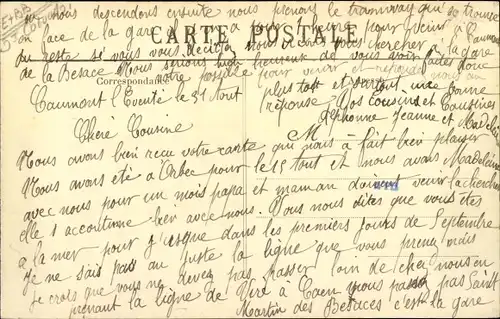 nous descendons ensuite nous prenons le tramway qui se trouve
en face de la gare
CARTE POSTALE
au reste si vous vous décidez nous irons vous chercher à la gare
de la Besace Nous serions bien heureux de vous voir faites donc
Correspondance
votre possible pour venir et
plus tôt et surtout une bonne
Caumont l'Eventé le 31 Tout
réponse Vos cousins et Cousines
Alphonse Jeanne et Madeleine
Chère Cousine
M
Nous avons bien recu votre carte qui nous à fait bien plaisir
Nous avons été a Orbec pour le 15 tout et nous avons Madeleine
avec nous pour un mois papa et maman doivent venir la chercher
elle s accoutume bien avec nous. Vous nous dites que vous êtes
a la mer pour jusque dans les premiers Jours de Septembre
Je ne sais pas au juste la ligne que vous prenez mais
Je crois que vous ne devez pas passer loin de chez nous en
prenant la ligne de Vire à Caen vous passez pas Saint
Martin des Besaces c'est la gare